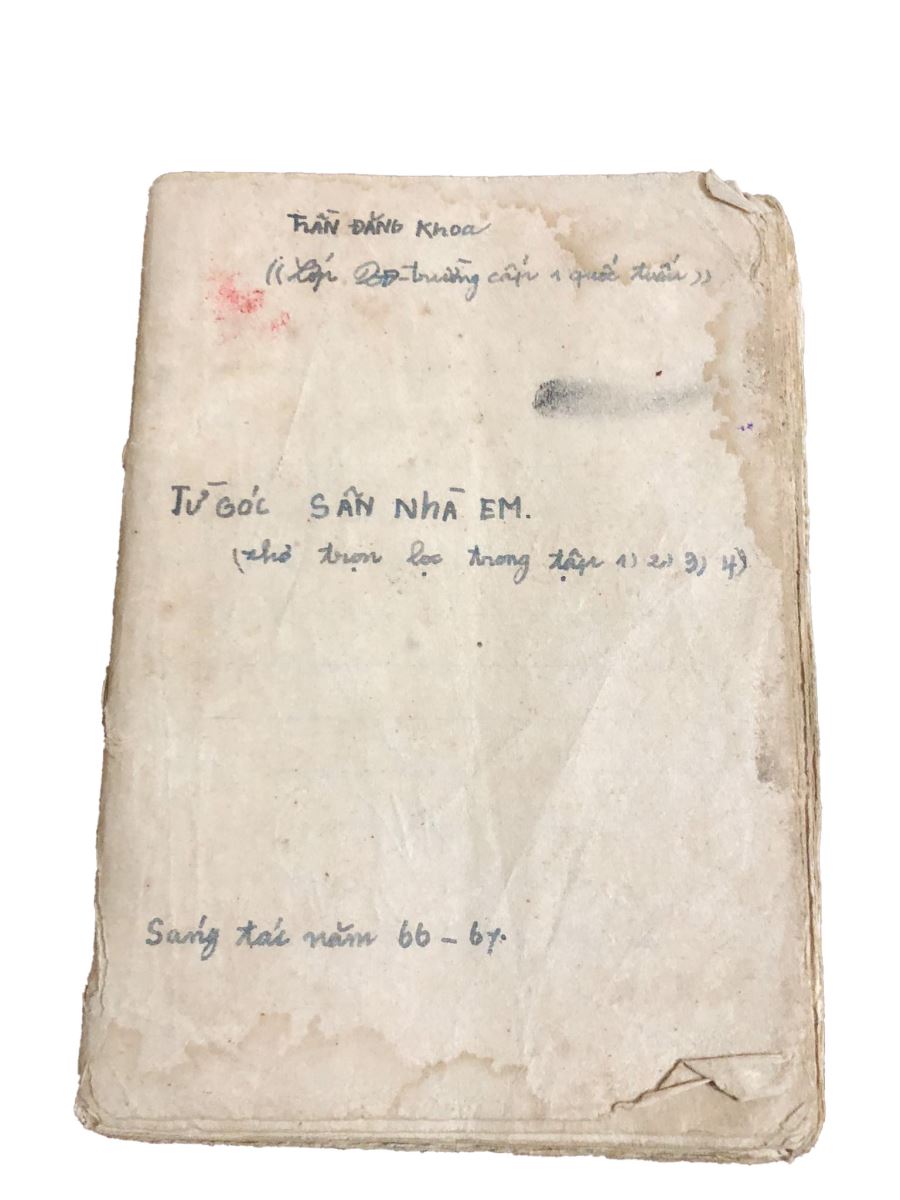 TRẦN ĐĂNG KHOA
((Lớp 2Đ-trường cấp 1 quốc tuấn))
TỪ GÓC SÂN NHÀ EM.
(thơ trọn lọc trong tập 1) 2) 3) 4)
Sáng tác năm 66 - 67.